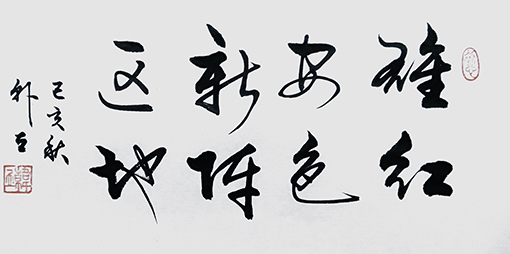 雄安新区
红色阵地
己亥秋